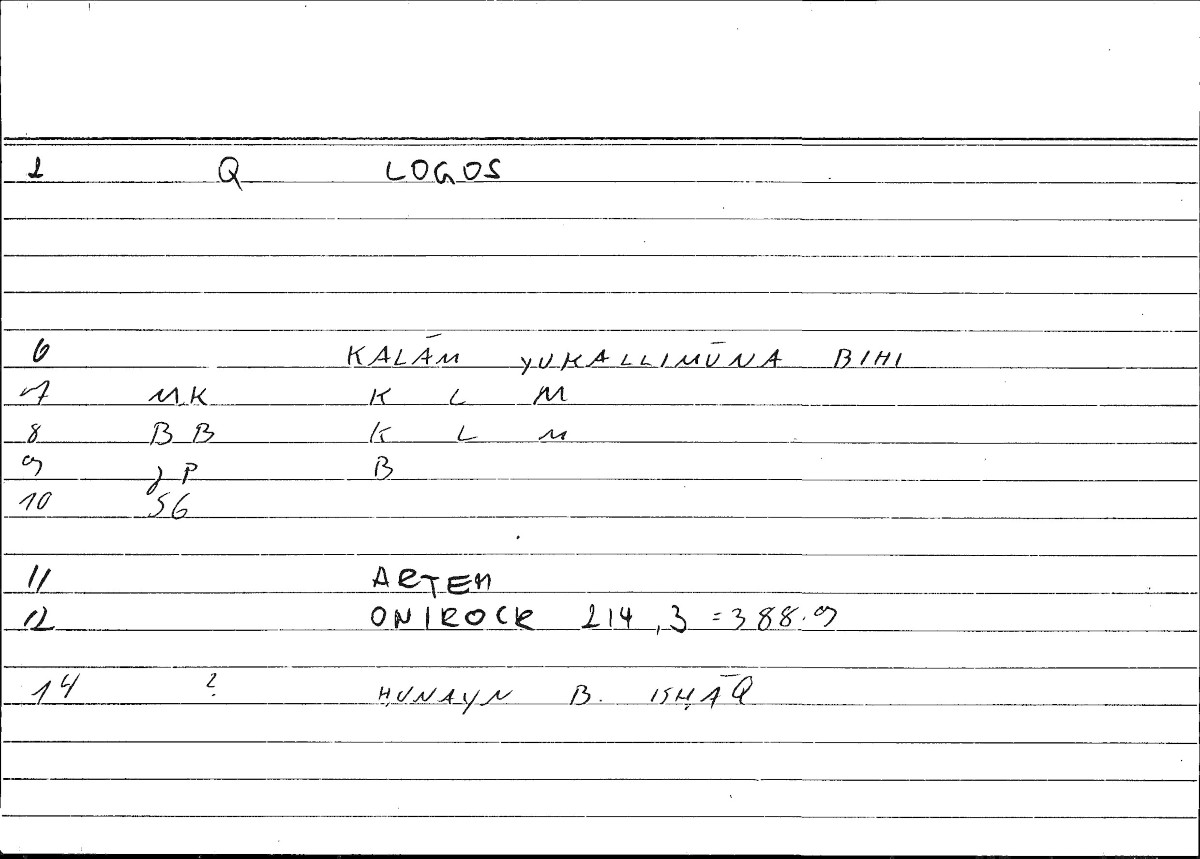 1 Q LOGOS
6 KALĀM YUKALLIMŪNA BIHI
7 MK K L M
8 BB K L M
9 JP B
10 SG
11 ARTEM
12 ONIROCR 214,3 =388.9
14 ? ḤUNAYN B. ISḤĀQ